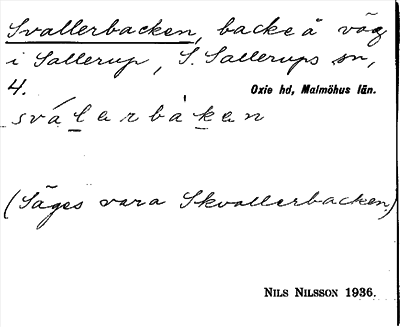 Svallerbacken, backe å väg
i Sallerup, S. Sallerups sn,
4. Oxie hd, Malmöhus län.
sválerbàken
(Säges vara Skvallerbacken.)
NILS NILSSON 1936.